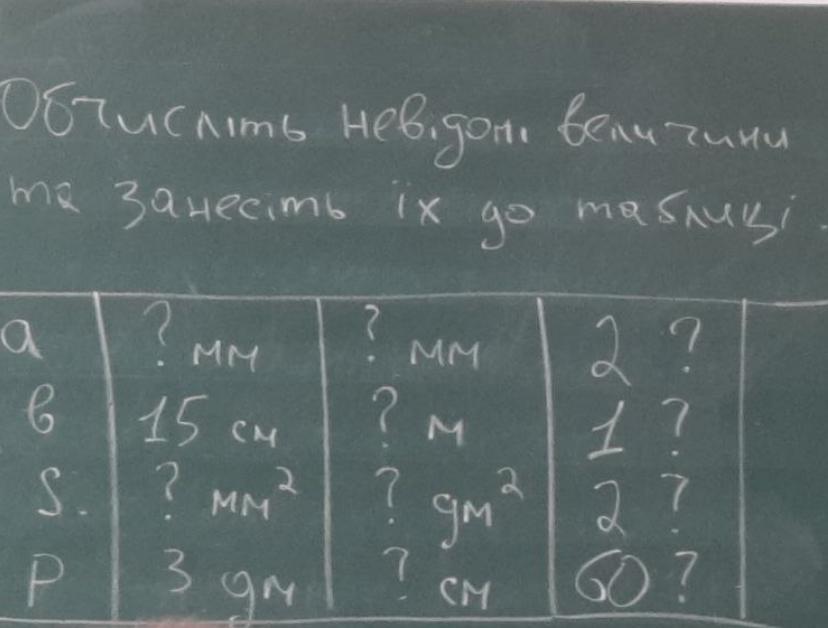 Обчисліть невідомі величини
та занесіть їх до таблиці.
a ? мм ? мм 2 ?
в 15 см ? м 1 ?
S. ? мм² ? дм² 2 ?
P 3 дм ? см 60 ?